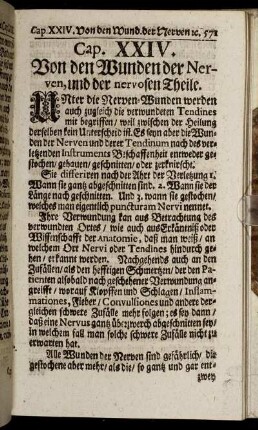 Cap XXIV. Von den Wund. der Nerven ꝛc. 571
Cap. XXIV.
Von den Wunden der Ner-
ven, und der nervosen Theile.
UNter die Nerven-Wunden werden
auch zugleich die verwundeten Tendines
mit begriffen / weil zwischen der Heilung
derselben kein Unterscheid ist. Es seyn aber die Wun-
den der Nerven und derer Tendinum nach des ver-
letzenden Instruments Beschaffenheit entweder ge-
stochen / gehauen / geschnitten / oder zerknirscht.
Sie differiren nach der Ahrt der Verletzung 1.
Wann sie gantz abgeschnitten sind. 2. Wann sie der
Länge nach geschnitten. Und 3. wann sie gestochen /
welches man eigentlich puncturam Nervi nennet.
Ihre Verwundung kan aus Betrachtung des
verwundten Ortes / wie auch aus Erkäntniß oder
Wissenschafft der Anatomie, daß man weiß / an
welchem Ort Nervi oder Tendines hindurch ge-
hen / erkannt werden. Nachgehends auch an den
Zufällen / als den hefftigen Schmertzen / der den Pa-
tienten alsobald nach geschehener Verwundung an-
greifft / worauf Klopffen und Schlagen / Inflam-
mationes, Fieber / Convulsiones und andere der-
gleichen schwere Zufälle mehr folgen; es sey dann /
daß eine Nervus gantz überzwerch abgeschnitten sey /
in welchem fall man solche schwere Zufälle nicht zu
erwarten hat.
Alle Wunden der Nerven sind gefährlich / die
gestochene aber mehr / als die / so gantz und gar ent-
zwey